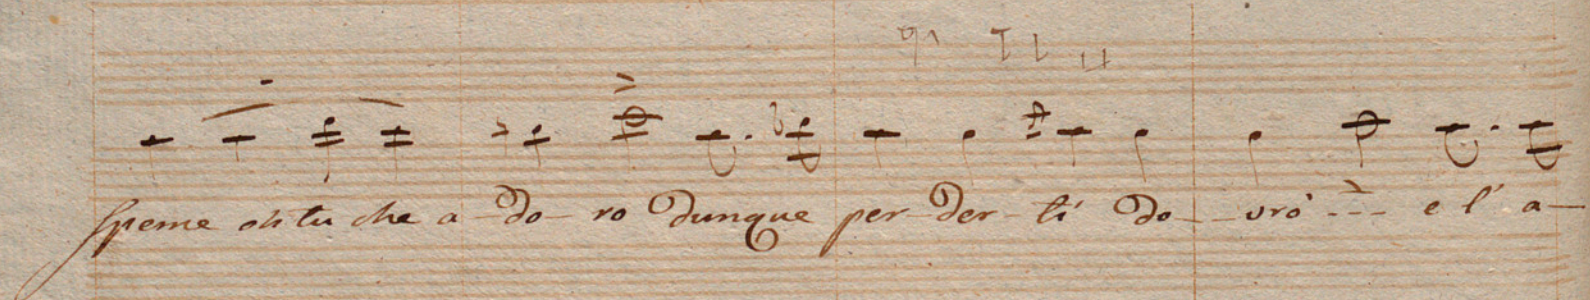 Speme oh tu che a-do-ro Dunque per-der-ti Do--vrò--- e l'a-